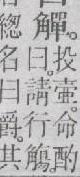 投壺。命酌
觶。曰。請行觴
總名曰爵。其